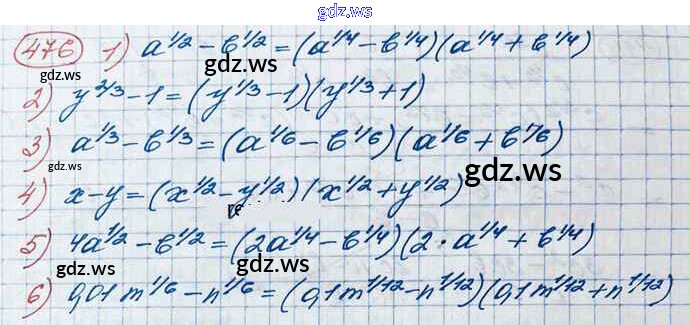 gdz.ru
476 1) a^1/2 - b^1/2 = (a^1/4 - b^1/4)(a^1/4 + b^1/4)
gdz.ru
2) y^2/3 - 1 = (y^1/3 - 1)(y^1/3 + 1)
3) a^1/3 - b^1/3 = (a^1/6 - b^1/6)(a^1/6 + b^1/6)
gdz.ru
4) x - y = (x^1/2 - y^1/2)(x^1/2 + y^1/2)
5) 4a^1/2 - b^1/2 = (2a^1/4 - b^1/4)(2·a^1/4 + b^1/4)
gdz.ru
6) 0,01 m^1/6 - n^1/6 = (0,1m^1/12 - n^1/12)(0,1m^1/12 + n^1/12)